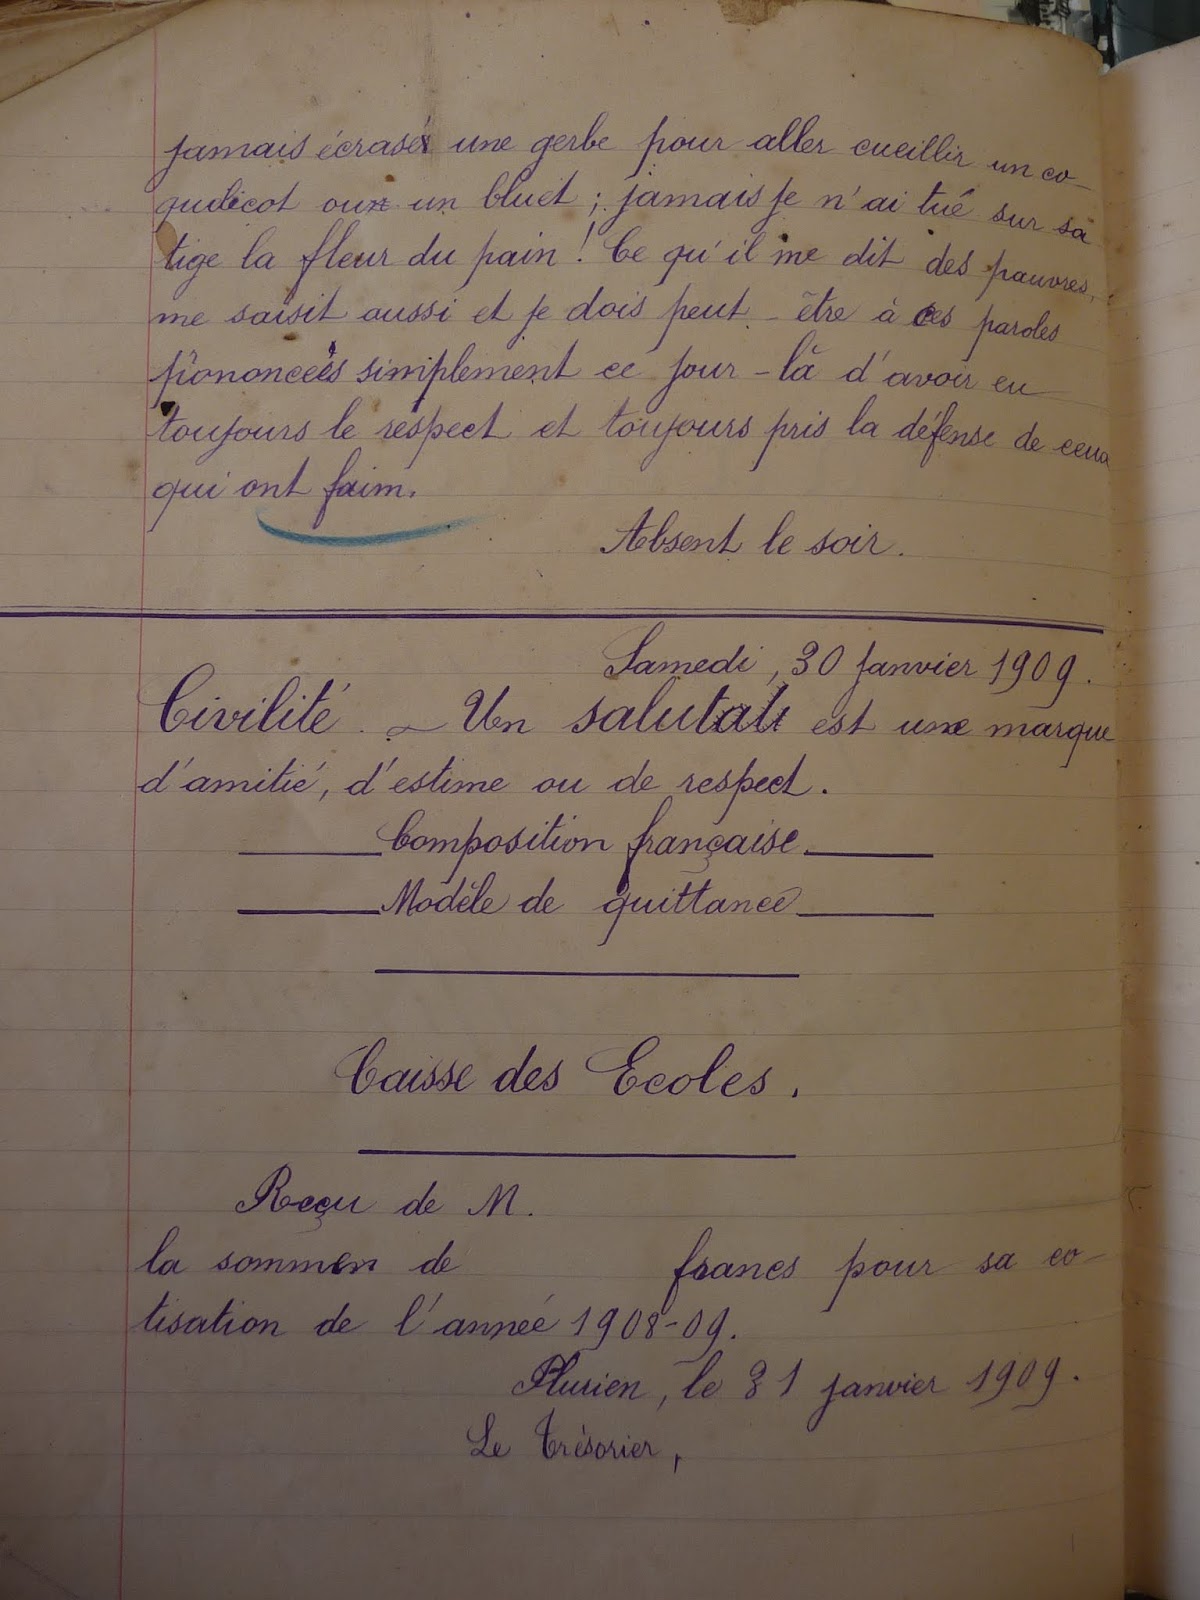 jamais écrasé une gerbe pour aller cueillir un co-
quelicot ou un bluet ; jamais je n'ai tué sur sa
tige la fleur du pain ! Ce qu'il me dit des pauvres,
me saisit aussi et je dois peut-être à ces paroles
prononcées simplement ce jour-là d'avoir eu
toujours le respect et toujours pris la défense de ceux
qui ont faim.
Absent le soir.
Samedi, 30 janvier 1909.
Civilité. - Un salut est une marque
d'amitié, d'estime ou de respect.
Composition française.
Modèle de quittance
Caisse des Ecoles.
Reçu de M.
la somme de francs pour sa co-
tisation de l'année 1908-09.
Plurien, le 31 janvier 1909.
Le Trésorier,